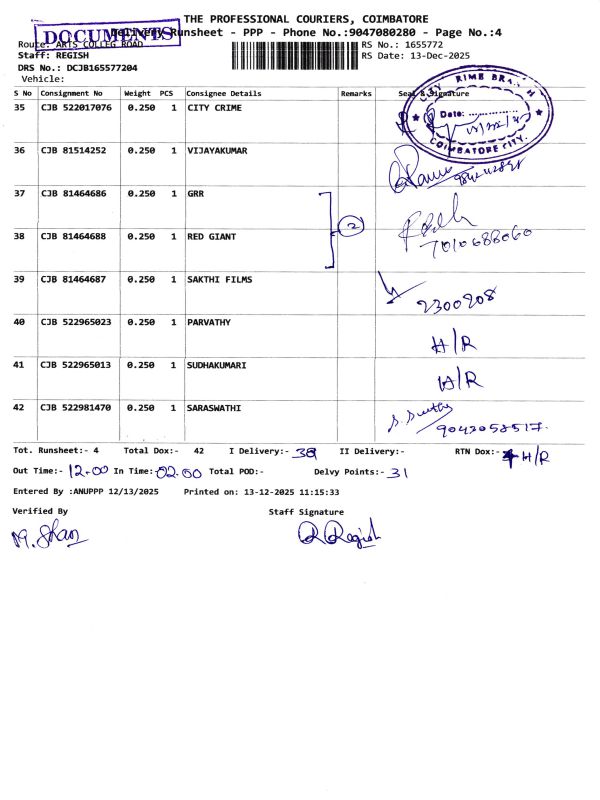 THE PROFESSIONAL COURIERS, COIMBATORE
DOCUMENTS
Delivery Runsheet - PPP - Phone No.:9047080280 - Page No.:4
Route: ARTS COLLEG ROAD
RS No.: 1655772
Staff: REGISH
RS Date: 13-Dec-2025
DRS No.: DCJB165577204
Vehicle:
S No Consignment No Weight PCS Consignee Details Remarks Seal & Signature
35 CJB 522017076 0.250 1 CITY CRIME
Date:
COIMBATORE CITY.
36 CJB 81514252 0.250 1 VIJAYAKUMAR
37 CJB 81464686 0.250 1 GRR
2
38 CJB 81464688 0.250 1 RED GIANT
7010688060
39 CJB 81464687 0.250 1 SAKTHI FILMS
2300908
40 CJB 522965023 0.250 1 PARVATHY
H/R
41 CJB 522965013 0.250 1 SUDHAKUMARI
H/R
42 CJB 522981470 0.250 1 SARASWATHI
9042058517.
Tot. Runsheet:- 4 Total Dox:- 42 I Delivery:- 38 II Delivery:- RTN Dox:- 4 H/R
Out Time:- 12.00 In Time: 02.00 Total POD:- Delvy Points:- 31
Entered By :ANUPPP 12/13/2025 Printed on: 13-12-2025 11:15:33
Verified By Staff Signature
R Regish